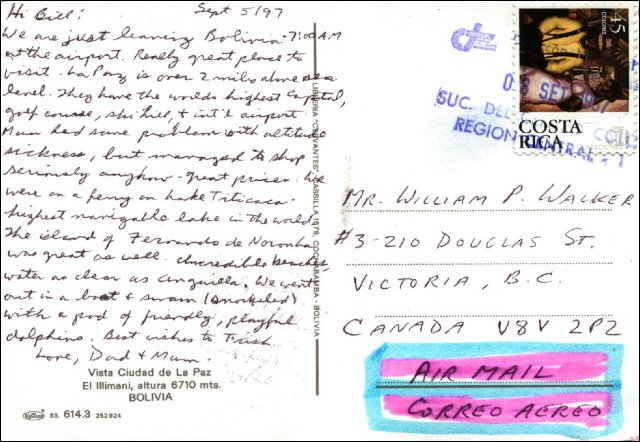 Hi Bill! Sept 5/97
We are just leaving Bolivia - 7:00 AM
at the airport. Really great place to
visit. La Paz is over 2 miles above sea
level. They have the worlds highest Capital,
golf course, ski hill, & int'l airport.
Mum had some problem with altitude
sickness, but managed to shop
seriously anyhow - great prices. We
were on a ferry on Lake Titicaca -
highest navigable lake in the world.
The island of Fernando de Noronha
was great as well. Incredible beaches,
water as clear as Anguilla. We went
out in a boat & swam (snorkeled)
with a pod of friendly, playful
dolphins. Best wishes to Trish.
Love, Dad & Mum.
Vista Ciudad de La Paz
El Illimani, altura 6710 mts.
BOLIVIA
Kolfoca 83. 614.3 252924
CASILLA 1579, COCHABAMBA - BOLIVIA
45
COLONES
COSTA
RICA
SET
SUC. DEL
REGION CENTRAL
MR. WILLIAM P. WALKER
#3-210 DOUGLAS ST.
VICTORIA, B.C.
CANADA V8V 2P2
AIR MAIL
CORREO AEREO